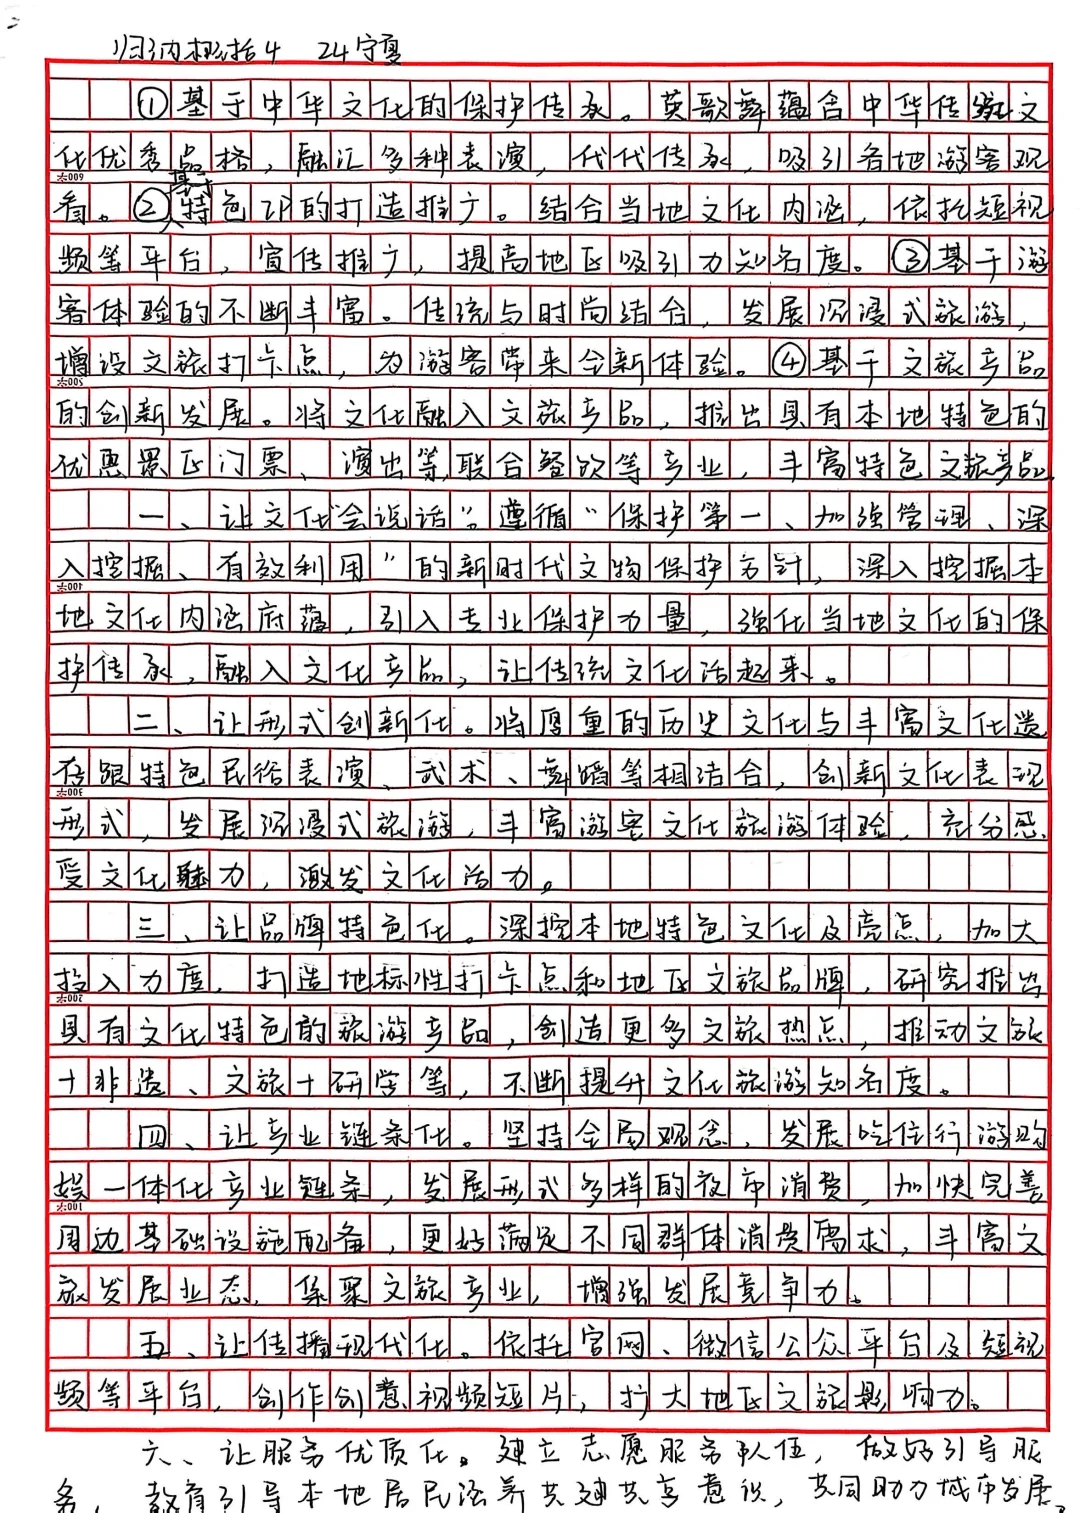 归纳概括4 24宁夏
①基于中华文化的保护传承。英歌舞蕴含中华传统文
化优秀品格，融汇多种表演，代代传承，吸引各地游客观
600字
看。②基于特色IP的打造推广。结合当地文化内涵，依托短视
频等平台，宣传推广，提高地区吸引力知名度。③基于游
客体验的不断丰富。传统与时尚结合，发展沉浸式旅游，
增设文旅打卡点，为游客带来全新体验。④基于文旅产品
500字
的创新发展。将文化融入文旅产品，推出具有本地特色的
优惠景区门票、演出等，联合餐饮等产业，丰富特色文旅产品
一、让文化“会说话”。遵循“保护第一、加强管理、深
入挖掘、有效利用”的新时代文物保护方针，深入挖掘本
400字
地文化内涵底蕴，引入专业保护力量，强化当地文化的保
护传承，融入文化产品，让传统文化活起来。
二、让形式创新化。将厚重的历史文化与丰富文化遗
存跟特色民俗表演、武术、舞蹈等相结合，创新文化表现
300字
形式，发展沉浸式旅游，丰富游客文化旅游体验，充分感
受文化魅力，激发文化活力。
三、让品牌特色化。深挖本地特色文化及亮点，加大
投入力度，打造地标性打卡点和地区文旅品牌，研究推出
200字
具有文化特色的旅游产品，创造更多文旅热点，推动文旅
+非遗、文旅+研学等，不断提升文化旅游知名度。
四、让产业链条化。坚持全局观念，发展吃住行游购
娱一体化产业链条，发展形式多样的夜市消费，加快完善
100字
周边基础设施配备，更好满足不同群体消费需求，丰富文
旅发展业态，集聚文旅产业，增强发展竞争力。
五、让传播现代化。依托官网、微信公众平台及短视
频等平台，创作创意视频短片，扩大地区文旅影响力。
六、让服务优质化。建立志愿服务队伍，做好引导服
务，教育引导本地居民涵养共建共享意识，共同助力城市发展。